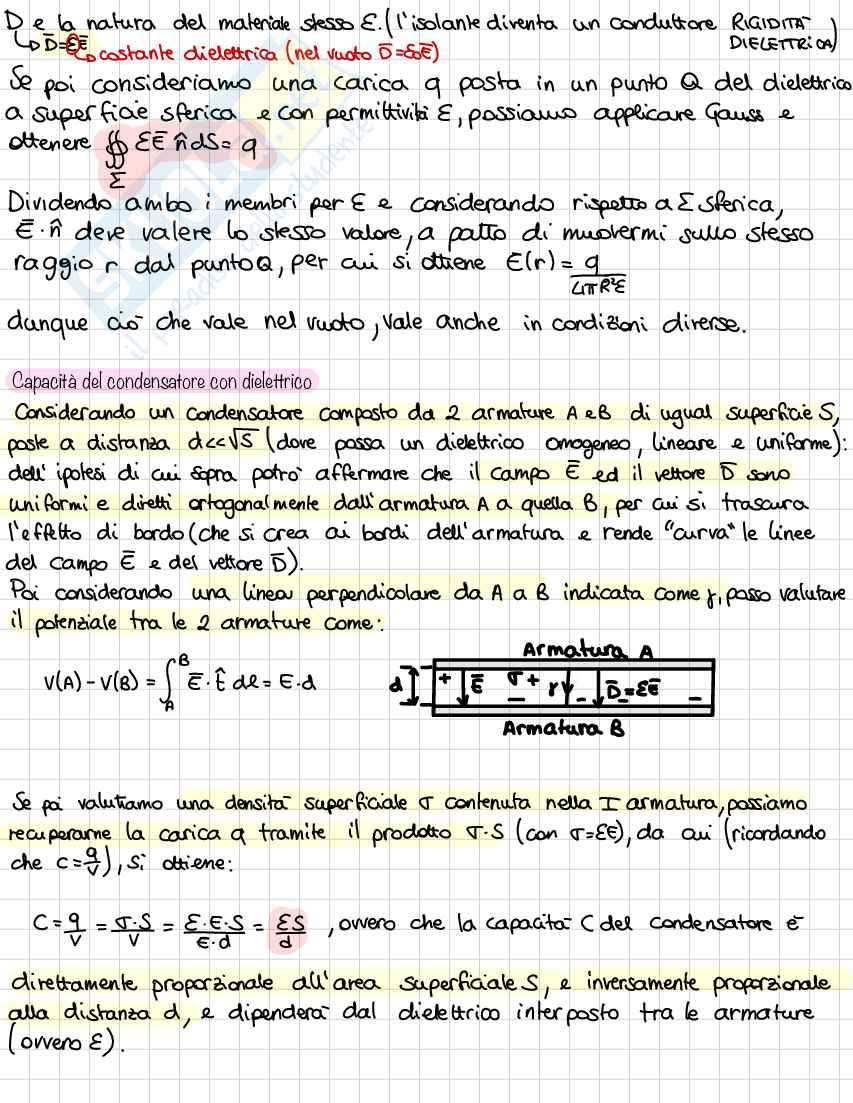 D e la natura del materiale stesso ε. (l'isolante diventa un conduttore RIGIDITÀ DIELETTRICA)
D̅=εE̅
costante dielettrica (nel vuoto D̅=ε₀E̅)
Se poi consideriamo una carica q posta in un punto Q del dielettrico
a superficie sferica e con permittività ε, possiamo applicare Gauss e
ottenere ∯_Σ εE̅ n̂ dS = q
Dividendo ambo i membri per ε e considerando rispetto a Σ sferica,
E̅·n̂ deve valere lo stesso valore, a patto di muovermi sullo stesso
raggio r dal punto Q, per cui si ottiene E(r) = q/(4πR²ε)
dunque ciò che vale nel vuoto, vale anche in condizioni diverse.
Capacità del condensatore con dielettrico
Considerando un condensatore composto da 2 armature A e B di ugual superficie S,
poste a distanza d<<√S (dove passa un dielettrico omogeneo, lineare e uniforme):
dell'ipotesi di cui sopra potrò affermare che il campo E̅ ed il vettore D̅ sono
uniformi e diretti ortogonalmente dall'armatura A a quella B, per cui si trascura
l'effetto di bordo (che si crea ai bordi dell'armatura e rende "curva" le linee
del campo E̅ e del vettore D̅).
Poi considerando una linea perpendicolare da A a B indicata come γ, posso valutare
il potenziale tra le 2 armature come:
V(A) - V(B) = ∫_A^B E̅·t̂ dl = E·d
Armatura A
d + E̅ σ+ γ - D̅=εE̅ -
Armatura B
Se poi valutiamo una densità superficiale σ contenuta nella I armatura, possiamo
recuperarne la carica q tramite il prodotto σ·S (con σ=εE), da cui (ricordando
che c=q/v), si ottiene:
C = q/V = σ·S/V = ε·E·S/E·d = εS/d , ovvero che la capacità C del condensatore è
direttamente proporzionale all'area superficiale S, e inversamente proporzionale
alla distanza d, e dipenderà dal dielettrico interposto tra le armature
(ovvero ε).